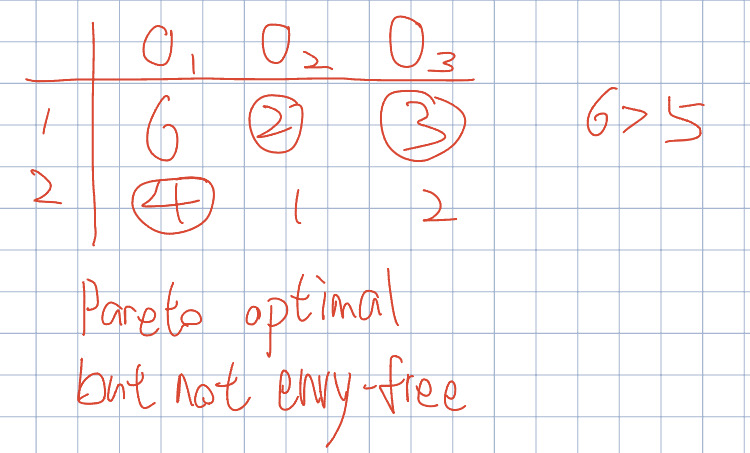 O₁ O₂ O₃
1 6 2 3 6 > 5
2 4 1 2
Pareto optimal
but not envy-free